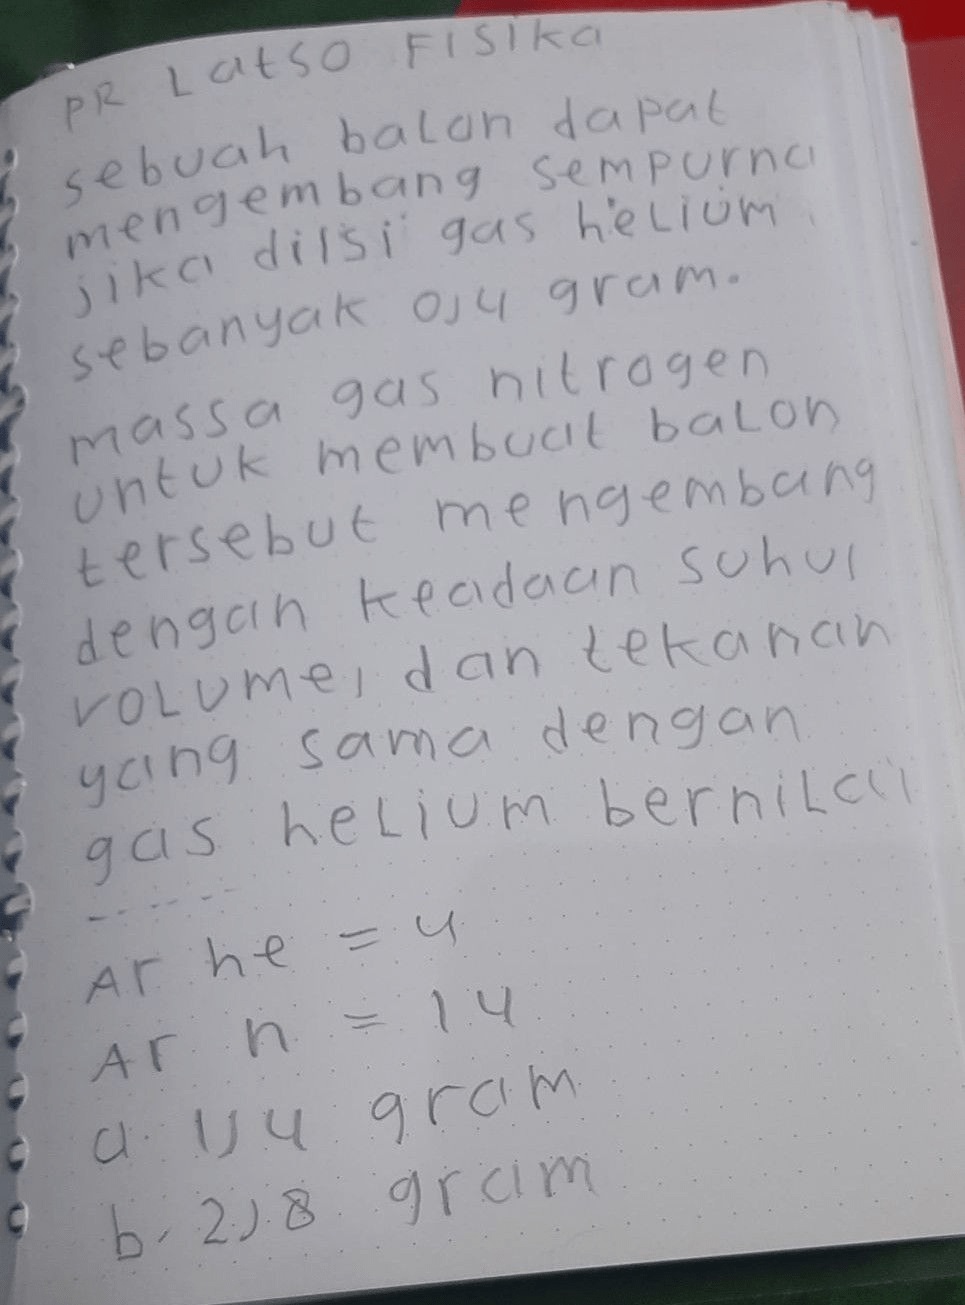 PR Latso FISIka
sebuah balon dapat
mengembang sempurna
jika diIsi gas helium
sebanyak 0,4 gram.
massa gas nitrogen
untuk membuat balon
tersebut mengembang
dengan keadaan suhu,
volume, dan tekanan
yang sama dengan
gas helium bernilai
......
Ar he = 4
Ar n = 14
a. 1,4 gram
b. 2,8 gram